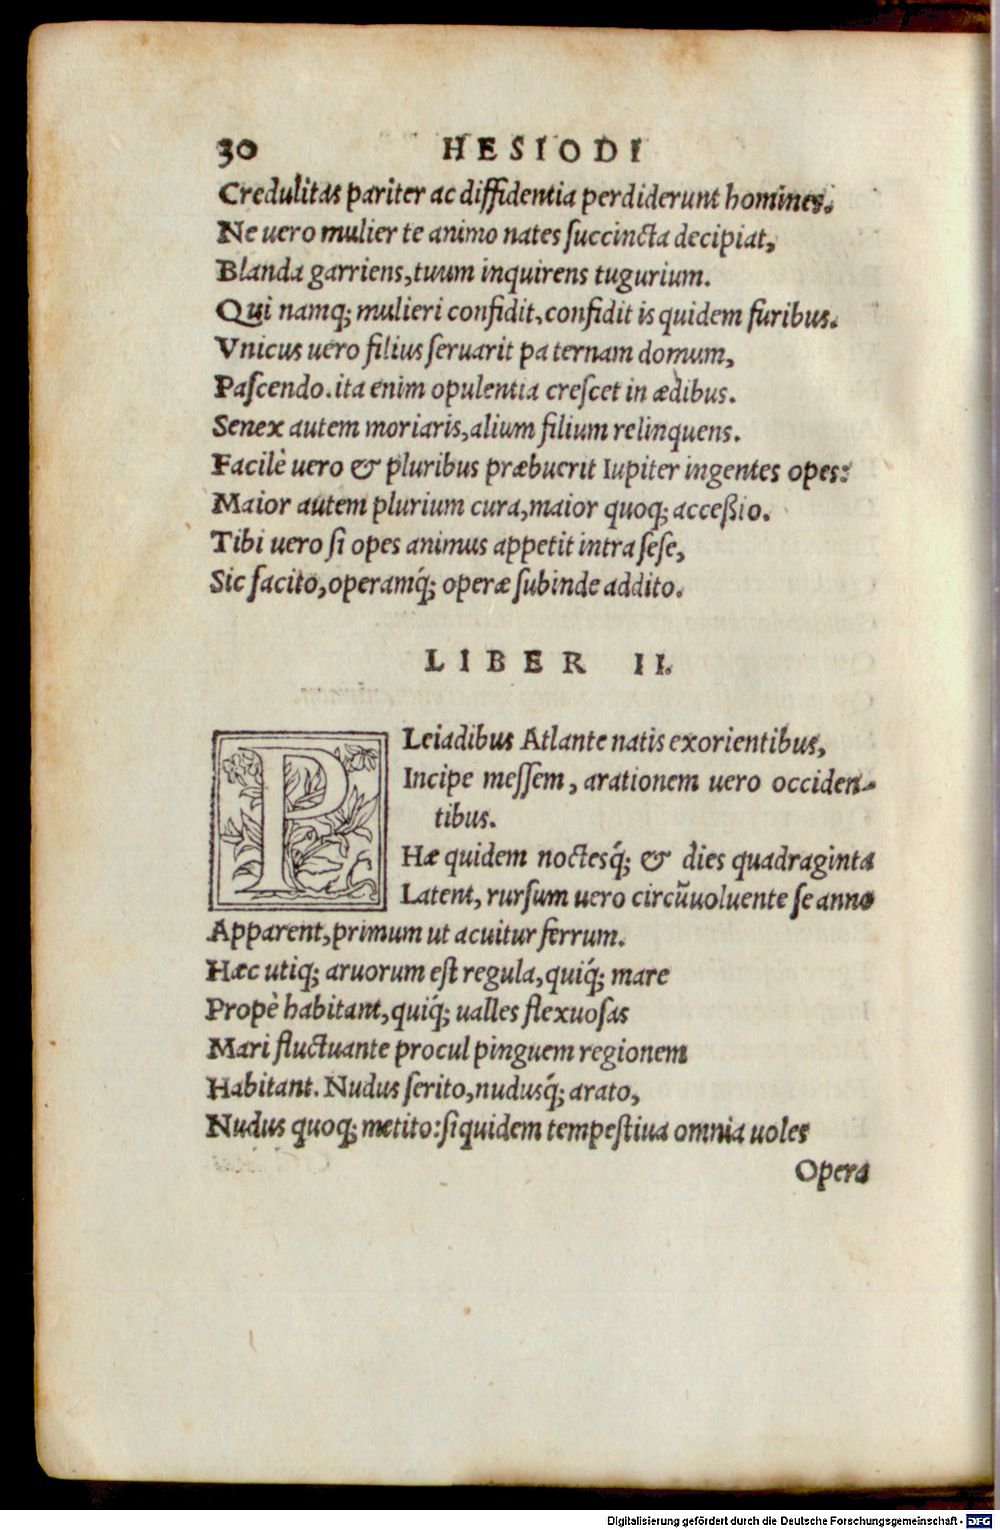 30 HESIODI
Credulitas pariter ac diffidentia perdiderunt homines.
Ne uero mulier te animo nates ſuccincta decipiat,
Blanda garriens, tuum inquirens tugurium.
Qui namq; mulieri confidit, confidit is quidem furibus.
Vnicus uero filius ſeruarit paternam domum,
Paſcendo. ita enim opulentia creſcet in ædibus.
Senex autem moriaris, alium filium relinquens.
Facilè uero & pluribus præbuerit Iupiter ingentes opes:
Maior autem plurium cura, maior quoq; acceßio.
Tibi uero ſi opes animus appetit intra ſeſe,
Sic facito, operamq́; operæ ſubinde addito.
LIBER II.
PLeiadibus Atlante natis exorientibus,
Incipe meſſem, arationem uero occiden-
tibus.
Hæ quidem noctesq́; & dies quadraginta
Latent, rurſum uero circũuoluente ſe anno
Apparent, primum ut acuitur ferrum.
Hæc utiq; aruorum eſt regula, quiq́; mare
Propè habitant, quiq́; ualles flexuoſas
Mari fluctuante procul pinguem regionem
Habitant. Nudus ſerito, nudusq́; arato,
Nudus quoq; metito: ſiquidem tempeſtiua omnia uoles
Opera
Digitalisierung gefördert durch die Deutsche Forschungsgemeinschaft - DFG